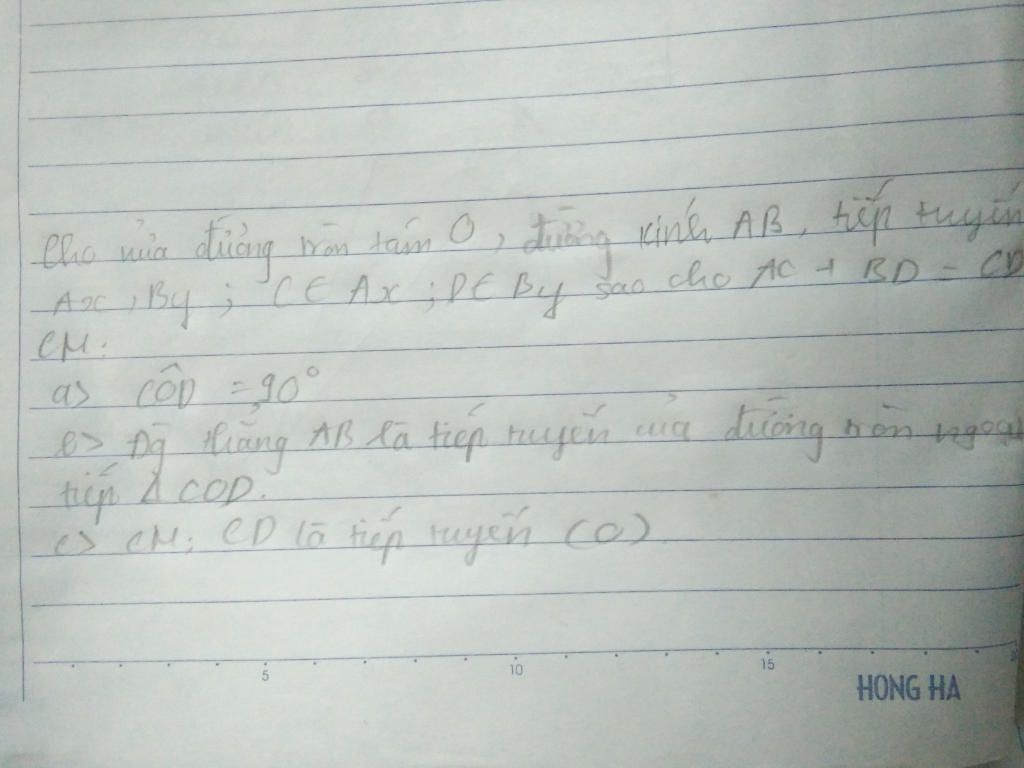 Cho nửa đường tròn tâm O, đường kính AB, tiếp tuyến
Ax, By; C∈ Ax; D∈ By sao cho AC + BD = CD
CM:
a> CÔD = 90°
b> Đg thẳng AB là tiếp tuyến của đường tròn ngoại
tiếp Δ COD.
c> CM: CD là tiếp tuyến (O)
5 10 15
HONG HA